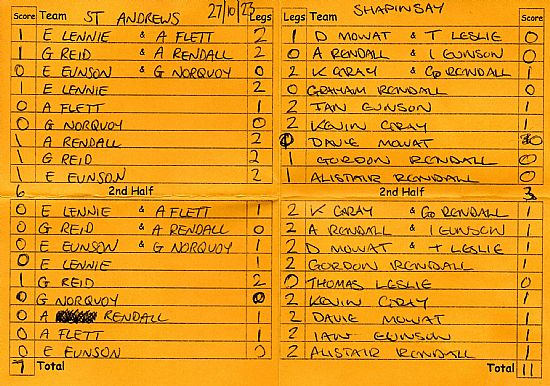 Score Team ST ANDREWS 27/10/23 Legs
1 E LENNIE & A FLETT 2
1 G REID & A RENDALL 2
0 E EUNSON & G NORQUOY 0
1 E LENNIE 2
0 A FLETT 1
0 G NORQUOY 0
1 A RENDALL 2
1 G REID 2
1 E EUNSON 2
6 2nd Half
0 E LENNIE & A FLETT 1
0 G REID & A RENDALL 0
0 E EUNSON & G NORQUOY 1
0 E LENNIE 1
1 G REID 2
0 G NORQUOY 0
0 A RENDALL 1
0 A FLETT 1
0 E EUNSON 0
7 Total
Legs Team SHAPINSAY Score
1 D MOWAT & T LESLIE 0
0 A RENDALL & I EUNSON 0
2 K GRAY & GO RENDALL 1
0 GRAHAM RENDALL 0
2 IAN EUNSON 1
2 KEVIN GRAY 1
0 DAVIE MOWAT 0
1 GORDON RENDALL 0
1 ALISTAIR RENDALL 0
2nd Half 3
2 K GRAY & GO RENDALL 1
2 A RENDALL & I EUNSON 1
2 D MOWAT & T LESLIE 1
2 GORDON RENDALL 1
0 THOMAS LESLIE 0
2 KEVIN GRAY 1
2 DAVIE MOWAT 1
2 IAN EUNSON 1
2 ALISTAIR RENDALL 1
Total 11